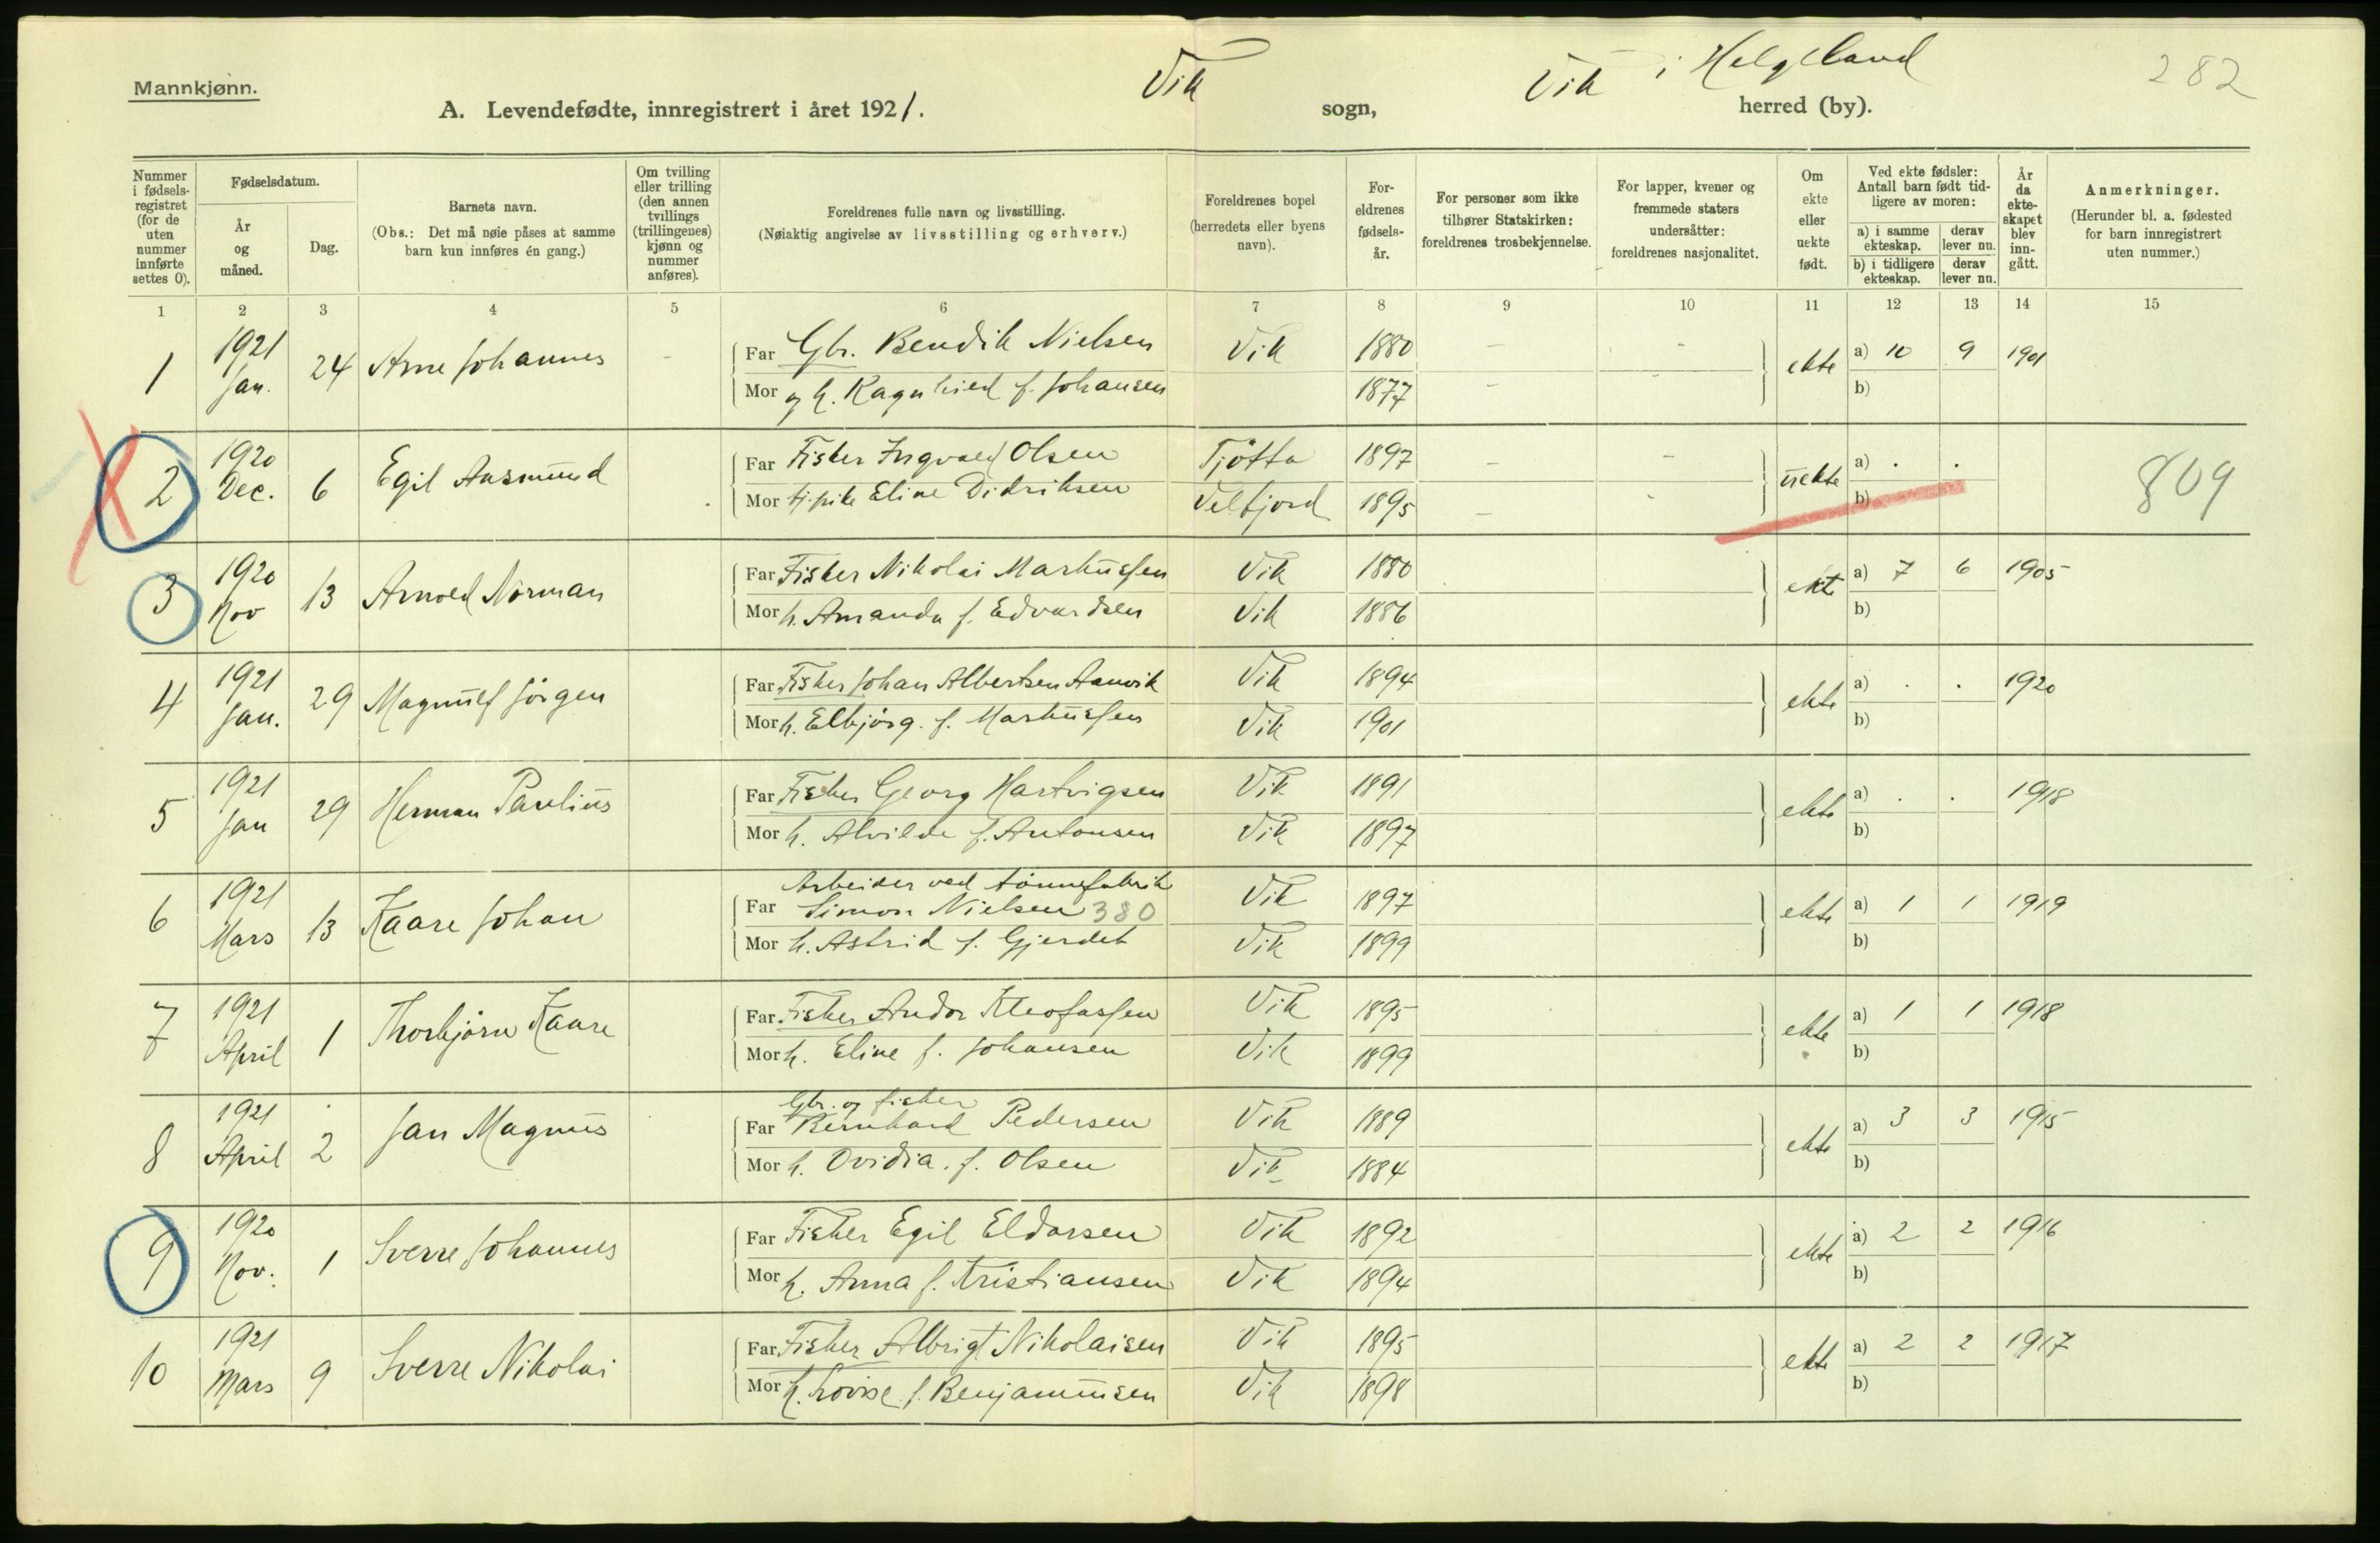 Mannkjønn.
A. Levendefødte, innregistrert i året 1921. Vik sogn, Vik i Helgeland herred (by). 282
Nummer i fødselsregistret (for de uten nummer innførte settes 0).
Fødselsdatum.
År og måned.
Dag.
Barnets navn.
(Obs.: Det må nøie påses at samme barn kun innføres én gang.)
Om tvilling eller trilling (den annen tvillings (trillingenes) kjønn og nummer anføres).
Foreldrenes fulle navn og livsstilling.
(Nøiaktig angivelse av livsstilling og erhverv.)
Foreldrenes bopel (herredets eller byens navn).
Foreldrenes fødselsår.
For personer som ikke tilhører Statskirken: foreldrenes trosbekjennelse.
For lapper, kvener og fremmede staters undersåtter: foreldrenes nasjonalitet.
Om ekte eller uekte født.
Ved ekte fødsler: Antall barn født tidligere av moren:
a) i samme ekteskap. derav lever nu.
b) i tidligere ekteskap. derav lever nu.
År da ekteskapet blev inngått.
Anmerkninger.
(Herunder bl. a. fødested for barn innregistrert uten nummer.)
1 2 3 4 5 6 7 8 9 10 11 12 13 14 15
1 1921 Jan. 24 Arne Johannes - Far Gbr. Bendik Nielsen Vik 1880 - - ekte a) 10 9 1901
Mor og h. Ragnhild f. Johansen 1877 - - b)
2 1920 Dec. 6 Egil Aasmund Far Fisker Ingvald Olsen Tjøtta 1897 - - uekte a) . . 809
Mor tj.pike Eline Didriksen Velfjord 1895 - - b)
3 1920 Nov 13 Arnold Norman Far Fisker Nikolai Markussen Vik 1880 ekte a) 7 6 1905
Mor h. Amanda f. Edvardsen Vik 1886 b)
4 1921 Jan. 29 Magnulf Jörgen Far Fisker Johan Albertsen Aanvik Vik 1894 ekte a) . . 1920
Mor h. Elbjörg. f. Markussen Vik 1901 b)
5 1921 Jan 29 Herman Paulius Far Fisker Georg Hartvigsen Vik 1891 ekte a) . . 1918
Mor h. Alvilde f. Antonsen Vik 1897 b)
6 1921 Mars 13 Kaare Johan Arbeider ved tönnefabrik
Far Simon Nielsen 380 Vik 1897 ekte a) 1 1 1919
Mor h. Astrid f. Gjerdet Vik 1899 b)
7 1921 April 1 Thorbjörn Kaare Far Fisker Andor Kleofassen Vik 1895 ekte a) 1 1 1918
Mor h. Eline f. Johansen Vik 1899 b)
8 1921 April 2 Jan Magnus Gbr. og fisker
Far Bernhard Pedersen Vik 1889 ekte a) 3 3 1915
Mor h. Ovidia. f. Olsen Vik 1884 b)
9 1920 Nov. 1 Sverre Johannes Far Fisker Egil Eldorsen Vik 1892 ekte a) 2 2 1916
Mor h. Anna f. Kristiansen Vik 1894 b)
10 1921 Mars 9 Sverre Nikolai Far Fisker Albrigt Nikolaisen Vik 1895 ekte a) 2 2 1917
Mor h. Lovise f. Benjaminsen Vik 1898 b)